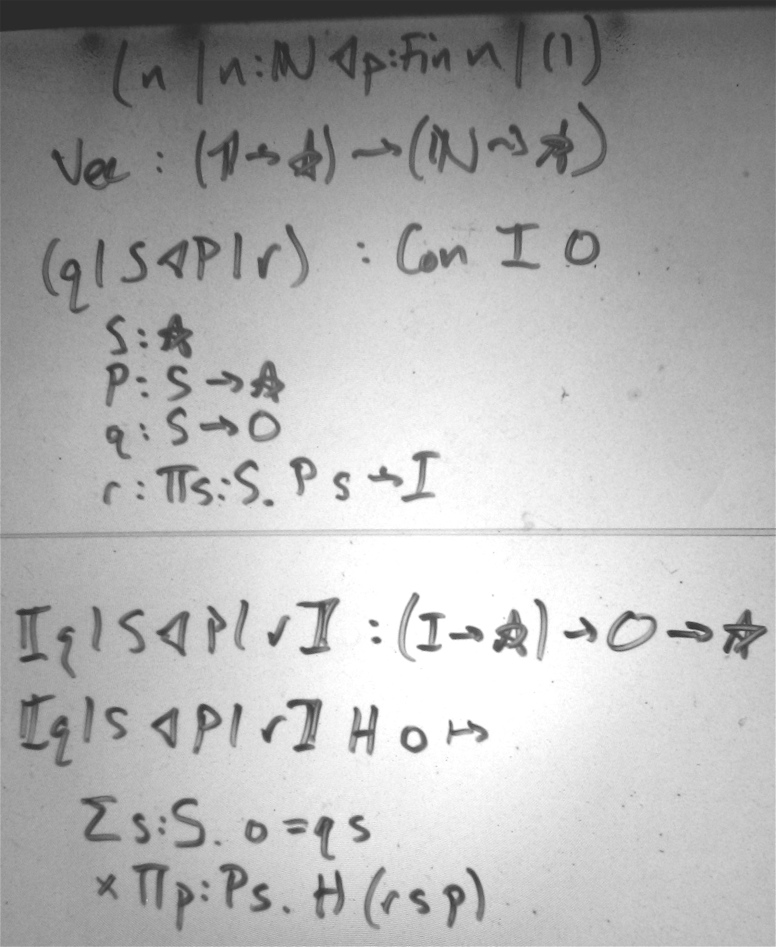 (n | n:ℕ ◁ p:Fin n | ())
Vec : (1→☆) → (ℕ→☆)
(q | S ◁ P | r) : Con I O
S : ☆
P : S → ☆
q : S → O
r : Πs:S. P s → I
⟦q | S ◁ P | r⟧ : (I→☆) → O → ☆
⟦q | S ◁ P | r⟧ H o ↦
Σs:S. o = q s
× Πp:Ps. H (r s p)